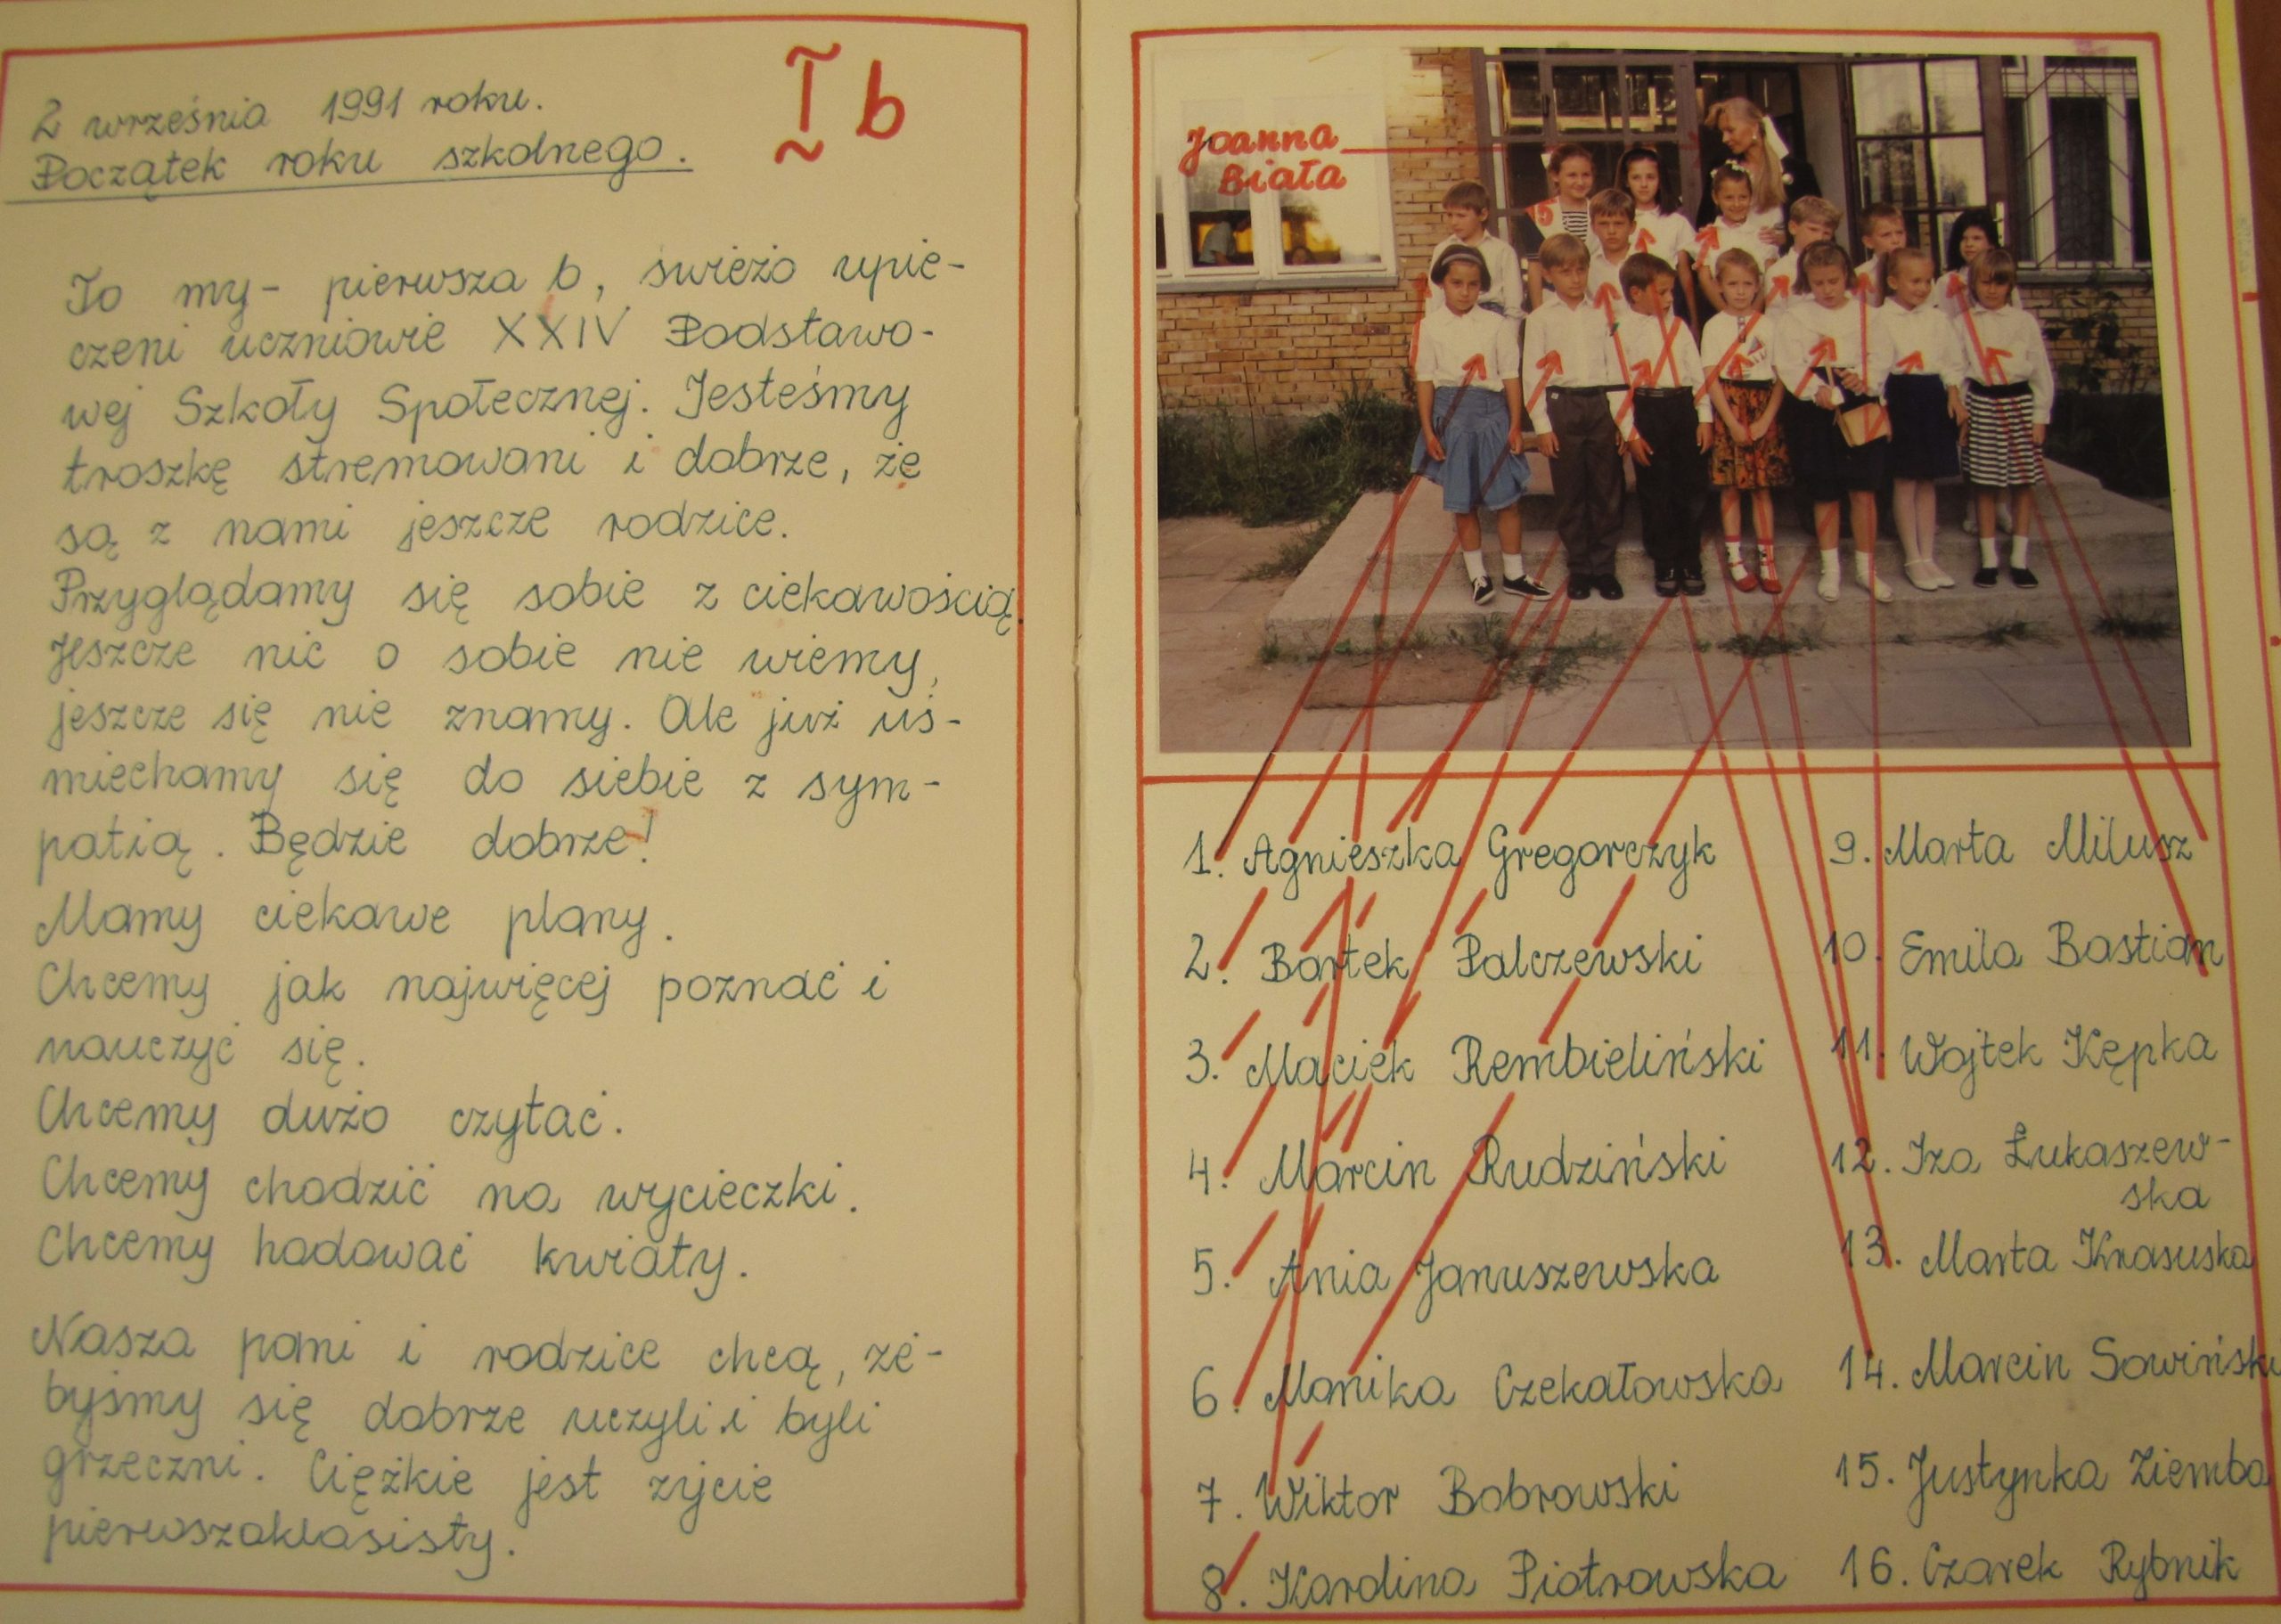 2 września 1991 roku.
Początek roku szkolnego.
I b
To my - pierwsza b, świeżo upie-
czeni uczniowie XXIV Podstawo-
wej Szkoły Społecznej. Jesteśmy
troszkę stremowani i dobrze, że
są z nami jeszcze rodzice.
Przyglądamy się sobie z ciekawością.
Jeszcze nic o sobie nie wiemy,
jeszcze się nie znamy. Ale już uś-
miechamy się do siebie z sym-
patią. Będzie dobrze!
Mamy ciekawe plany.
Chcemy jak najwięcej poznać i
nauczyć się.
Chcemy dużo czytać.
Chcemy chodzić na wycieczki.
Chcemy hodować kwiaty.
Nasza pani i rodzice chcą, że-
byśmy się dobrze uczyli i byli
grzeczni. Ciężkie jest życie
pierwszoklasisty.
Joanna
Biała
5
1. Agnieszka Gregorczyk
2. Bartek Palczewski
3. Maciek Rembieliński
4. Marcin Rudziński
5. Ania Januszewska
6. Monika Czekatowska
7. Wiktor Bobrowski
8. Karolina Piotrowska
9. Marta Milusz
10. Emila Bastian
11. Wojtek Kępka
12. Iza Łukaszew-
ska
13. Marta Krasuska
14. Marcin Sowiński
15. Justynka Ziemba
16. Czarek Rybnik